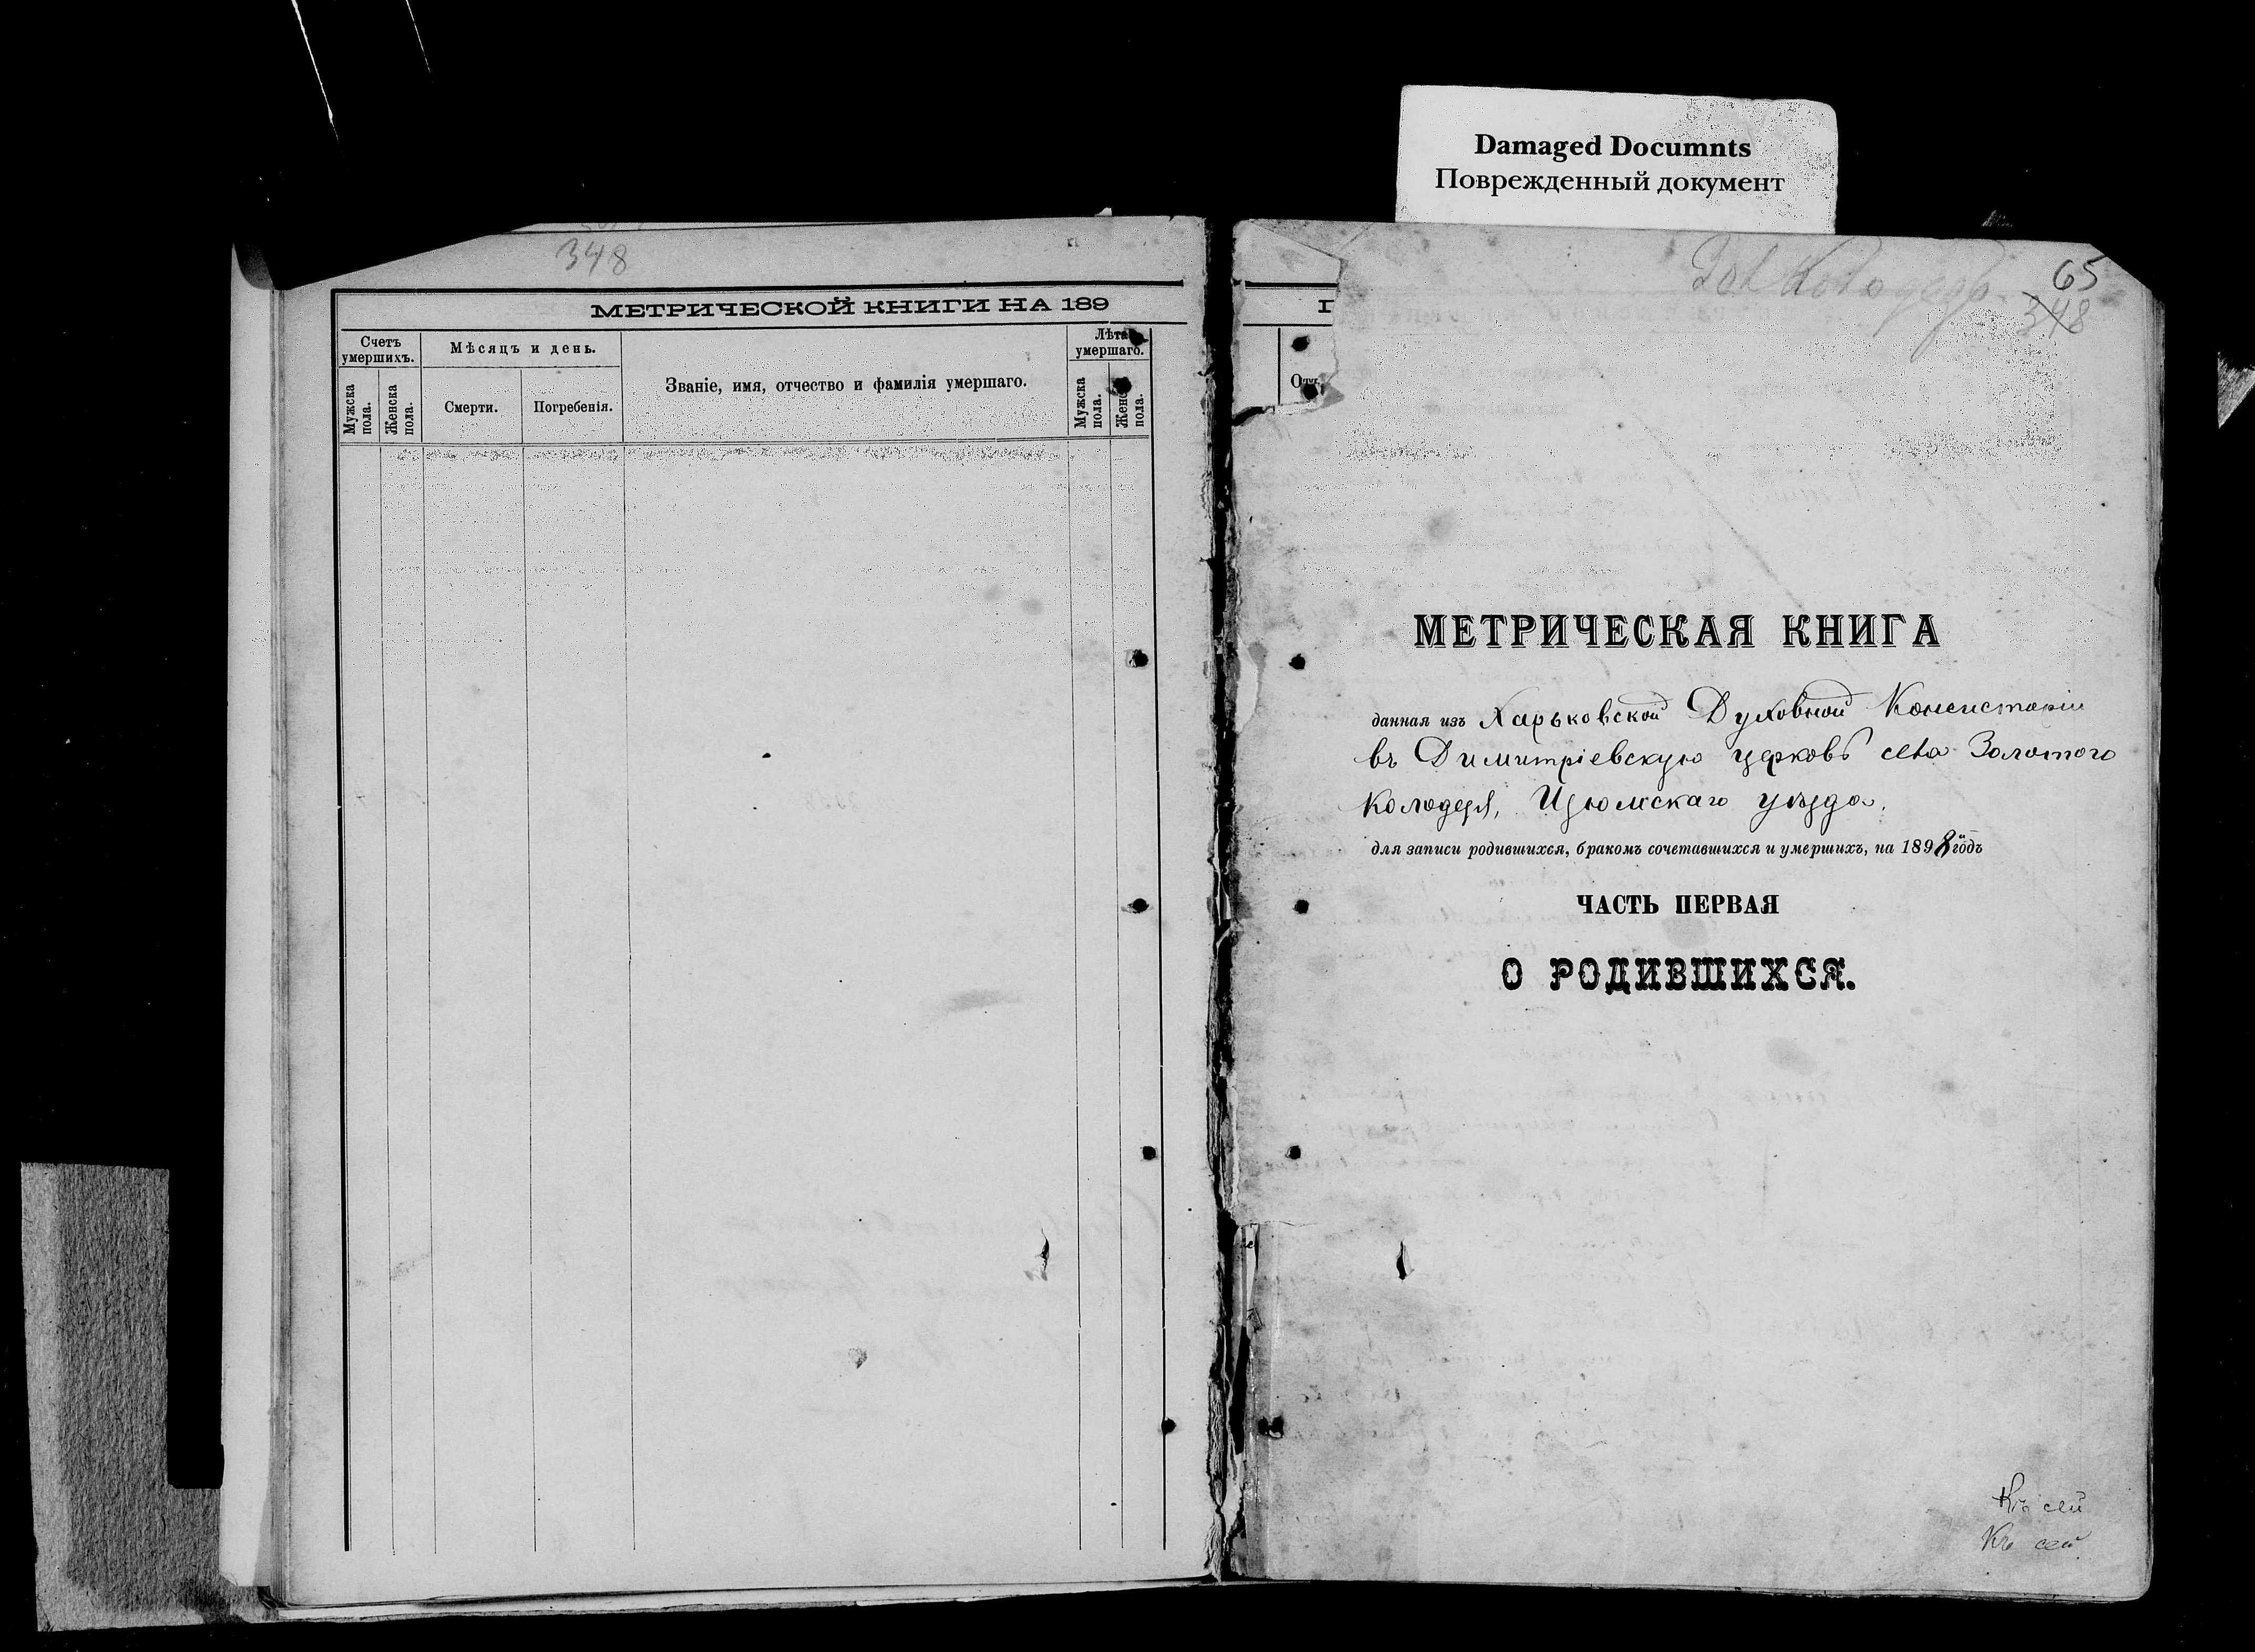 Damaged Documnts
Поврежденный документ
348
МЕТРИЧЕСКОЙ КНИГИ НА 189
Счетъ умершихъ.
Мѣсяцъ и день.
Званіе, имя, отчество и фамилія умершаго.
Лѣта умершаго.
Мужска пола.
Женска пола.
Смерти.
Погребенія.
Мужска пола.
пола.
Зол Колодезь
65
348
МЕТРИЧЕСКАЯ КНИГА
данная изъ Харьковской Духовной Консисторіи
въ Димитріевскую церковь села Золотого
Колодезя, Изюмскаго уѣзда,
для записи родившихся, бракомъ сочетавшихся и умершихъ, на 1898 годъ
ЧАСТЬ ПЕРВАЯ
О РОДИВШИХСЯ.
Къ сей
Къ сей